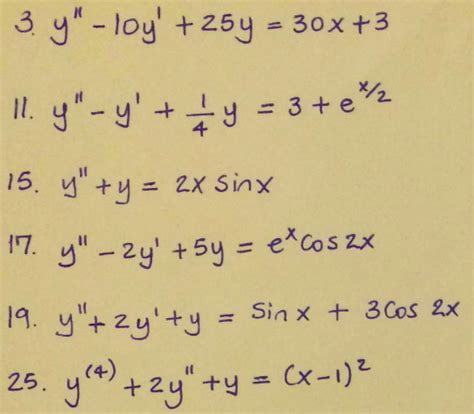 3. y" - 10y' + 25y = 30x + 3
11. y" - y' + 1/4 y = 3 + e^x/2
15. y" + y = 2x sinx
17. y" - 2y' + 5y = e^x cos2x
19. y" + 2y' + y = Sin x + 3 Cos 2x
25. y^(4) + 2y" + y = (x-1)^2